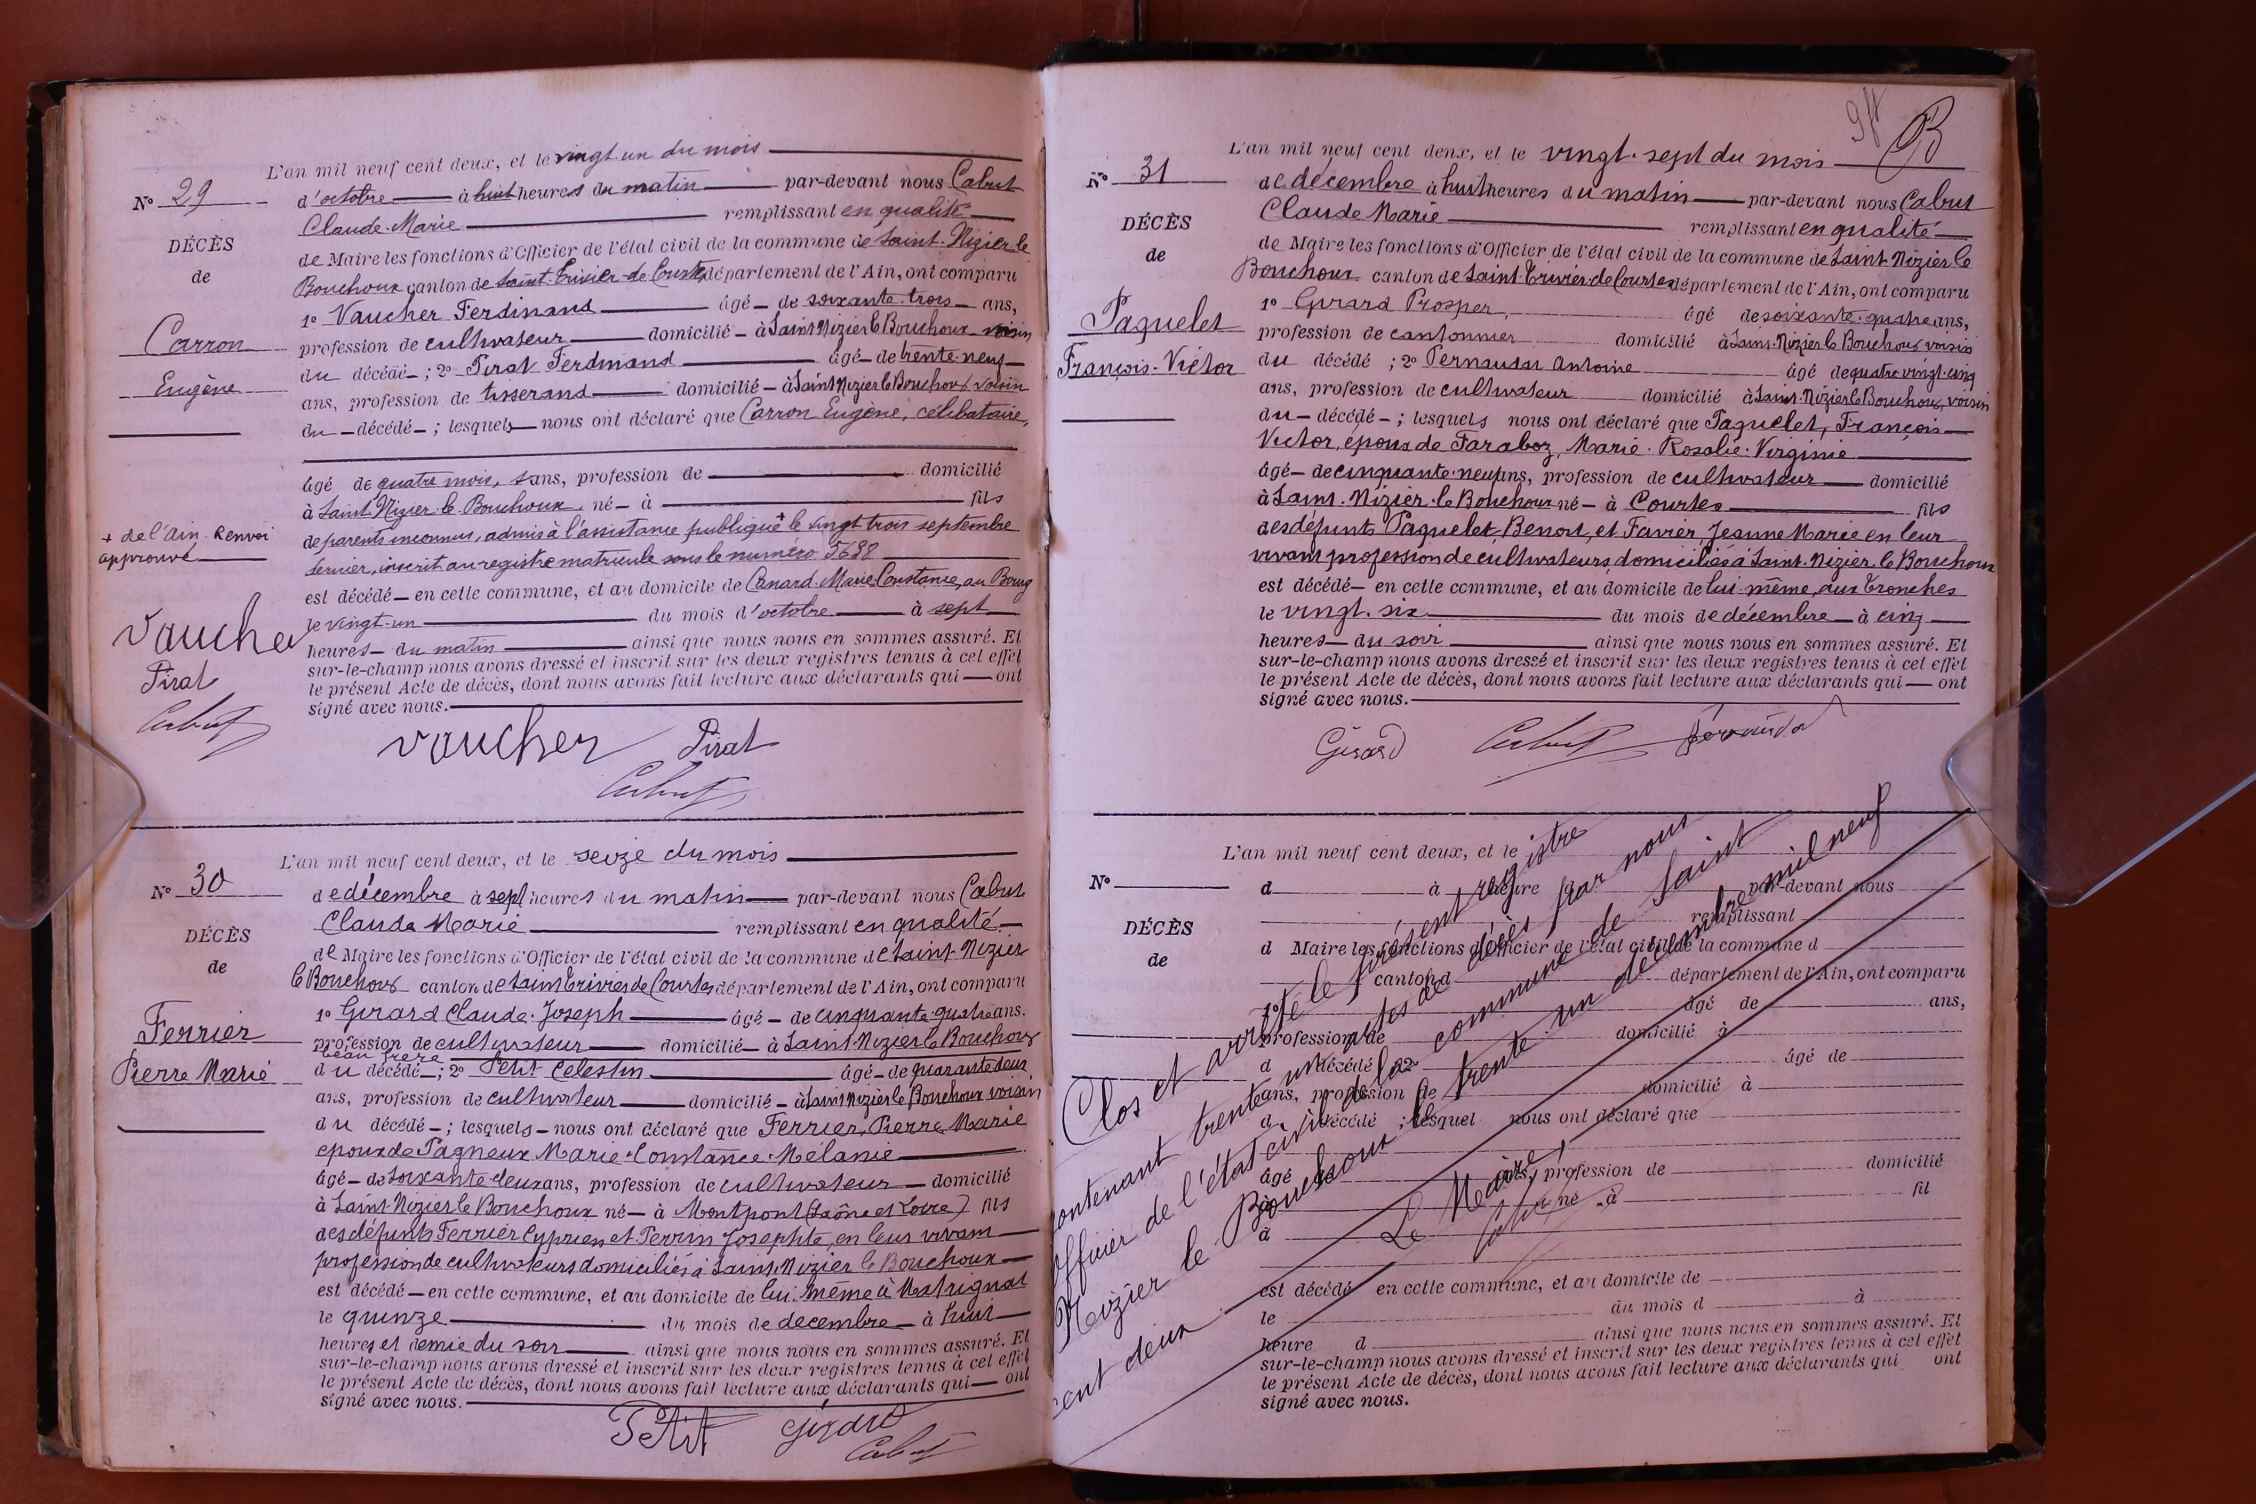 L'an mil neuf cent deux, et le vingt-un du mois
N° 29
d'octobre à huit heures du matin par-devant nous Cabut
Claude-Marie remplissant en qualité
DÉCÈS
de Maire les fonctions d'Officier de l'état civil de la commune de Saint-Nizier le
de
Bouchoux canton de Saint-Trivier-de Courtes département de l'Ain, ont comparu
1° Vaucher Ferdinand âgé de soixante-trois ans,
Carron
profession de cultivateur domicilié à Saint Nizier le Bouchoux voisin
Eugène
du décédé ; 2° Pirat Ferdinand âgé de trente-neuf
ans, profession de tisserand domicilié à Saint Nizier le Bouchoux voisin
du décédé ; lesquels nous ont déclaré que Carron Eugène, célibataire,
âgé de quatre mois, sans, profession de domicilié
à Saint Nizier-le-Bouchoux né à fils
+ de l'Ain. Renvoi
approuvé
de parents inconnus, admis à l'assistance publique + le vingt trois septembre
dernier, inscrit au registre matricule sous le numéro
est décédé en cette commune, et au domicile de Canard Marie Constance, au Bourg
le vingt-un du mois d'octobre à sept
heures du matin ainsi que nous nous en sommes assuré. Et
sur-le-champ nous avons dressé et inscrit sur les deux registres tenus à cet effet
le présent Acte de décès, dont nous avons fait lecture aux déclarants qui ont
signé avec nous.
Vaucher
Pirat
Cabut
Vaucher Pirat
Cabut
L'an mil neuf cent deux, et le seize du mois
N° 30
de décembre à sept heures du matin par-devant nous Cabut
Claude Marie remplissant en qualité
DÉCÈS
de Maire les fonctions d'Officier de l'état civil de la commune de Saint-Nizier
de
le Bouchoux canton de Saint Trivier de Courtes département de l'Ain, ont comparu
1° Girard Claude-Joseph âgé de cinquante-quatre ans.
Ferrier
profession de cultivateur domicilié à Saint Nizier le Bouchoux
beau frère
Pierre Marie
du décédé ; 2° Petit Celestin âgé de quarante deux
ans, profession de cultivateur domicilié à Saint Nizier le Bouchoux voisin
du décédé ; lesquels nous ont déclaré que Ferrier, Pierre Marie
epoux de Pagneux Marie-Constance-Mélanie
âgé de soixante deux ans, profession de cultivateur domicilié
à Saint Nizier le Bouchoux né à Montpont (Saône et Loire) fils
des défunts Ferrier Cyprien et Perrin Josephte, en leur vivant
profession de cultivateurs domiciliés à Saint Nizier le Bouchoux
est décédé en cette commune, et au domicile de lui-même à
le quinze du mois de decembre à huit
heures et demie du soir ainsi que nous nous en sommes assuré. Et
sur-le-champ nous avons dressé et inscrit sur les deux registres tenus à cet effet
le présent Acte de décès, dont nous avons fait lecture aux déclarants qui ont
signé avec nous.
Petit Girard
Cabut
L'an mil neuf cent deux, et le vingt-sept du mois
N° 31
de décembre à huit heures du matin par-devant nous Cabut
Claude Marie remplissant en qualité
DÉCÈS
de Maire les fonctions d'Officier de l'état civil de la commune de Saint-Nizier le
de
Bouchoux canton de Saint-Trivier-de Courtes département de l'Ain, ont comparu
1° Girard Prosper, âgé de soixante-quatre ans,
Paquelet
profession de cantonnier domicilié à Saint-Nizier le Bouchoux voisin
François-Victor
du décédé ; 2° Pernaudat Antoine âgé de quatre vingt-cinq
ans, profession de cultivateur domicilié à Saint-Nizier le Bouchoux, voisin
du décédé ; lesquels nous ont déclaré que Paquelet, François
Victor, époux de Faraboz, Marie-Rosalie-Virginie
âgé de cinquante-neuf ans, profession de cultivateur domicilié
à Saint-Nizier-le Bouchoux né à Courtes fils
des défunts Paquelet, Benoit, et Favier, Jeanne Marie en leur
vivant profession de cultivateurs, domiciliés à Saint-Nizier le Bouchoux
est décédé en cette commune, et au domicile de lui-même, aux Tronches
le vingt-six du mois de décembre à cinq
heures du soir ainsi que nous nous en sommes assuré. Et
sur-le-champ nous avons dressé et inscrit sur les deux registres tenus à cet effet
le présent Acte de décès, dont nous avons fait lecture aux déclarants qui ont
signé avec nous.
Girard Cabut
L'an mil neuf cent deux, et le
N°
d à heure par-devant nous
remplissant
DÉCÈS
d Maire les fonctions d'Officier de l'état civil de la commune d
de
canton d département de l'Ain, ont comparu
1° âgé de ans,
profession de domicilié à
d décédé ; 2° âgé de
ans, profession de domicilié à
d décédé ; lesquel nous ont déclaré que
âgé ans, profession de domicilié
à né à fil
à
est décédé en cette commune, et au domicile de
le du mois d à
heure d ainsi que nous nous en sommes assuré. Et
sur-le-champ nous avons dressé et inscrit sur les deux registres tenus à cet effet
le présent Acte de décès, dont nous avons fait lecture aux déclarants qui ont
signé avec nous.
Clos et arrêté le présent registre
contenant trente un actes de décès par nous
officier de l'état civil de la commune de Saint
Nizier le Bouchoux le trente un décembre mil neuf
cent deux
Le Maire,
Cabut